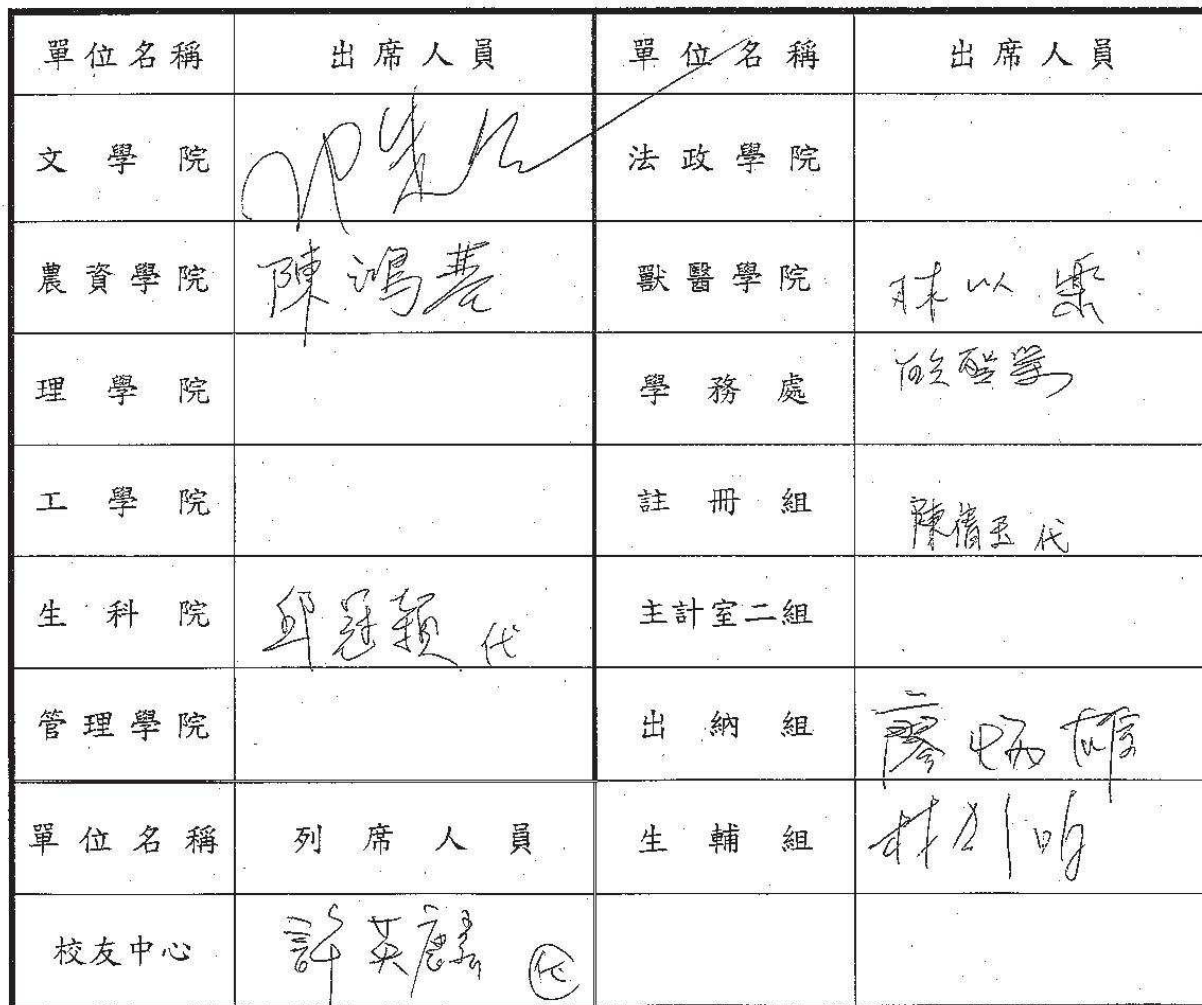 單位名稱 出席人員 單位名稱 出席人員
文學院 法政學院
農資學院 陳鴻 獸醫學院 林以樂
理學院 學務處
工學院 註冊組 陳倩玉 代
生科院 邱冠穎 代 主計室二組
管理學院 出納組 廖炳雄
單位名稱 列席人員 生輔組
校友中心 許英麟 代